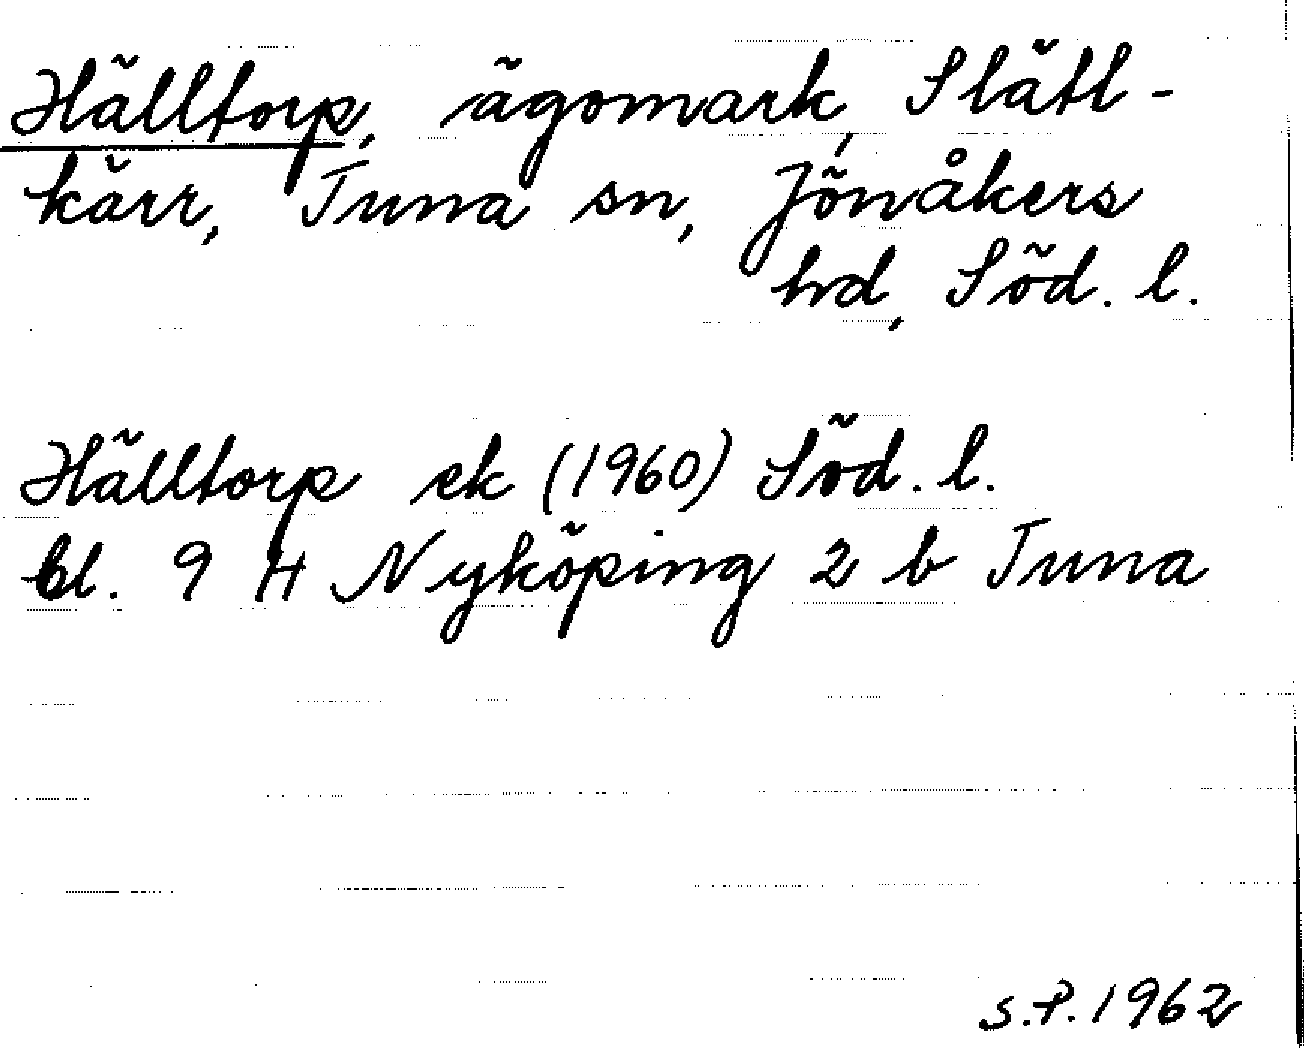 Hälltorp, ägomark, Slätt-
kärr, Tuna sn, Jönåkers
hd, Söd. l.
Hälltorp ek (1960) Söd. l.
bl. 9 H Nyköping 2 b Tuna
S.P. 1962